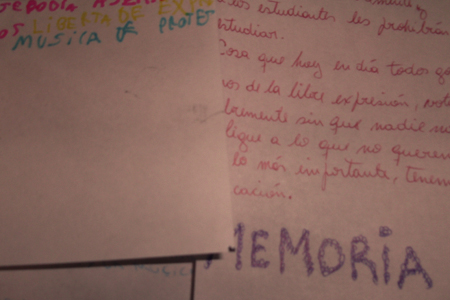 LIBERTA DE EXPR
MUSICA DE PROTET
los estudiantes les prohibían
estudiar.
Cosa que hay en día todos go
de la libre expresión, vot
bremente sin que nadie no
ligue a lo que no queren
lo más importante, tenem
cación.
MEMORIA